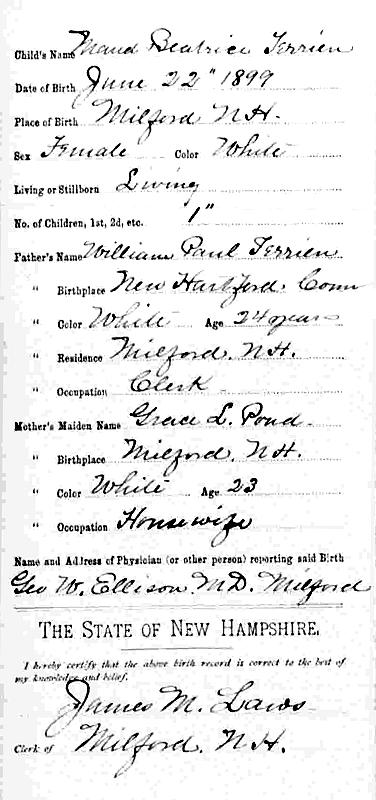 Child's Name Maud Beatrice Terrien
Date of Birth June 22" 1899
Place of Birth Milford N.H.
Sex Female Color White
Living or Stillborn Living
No. of Children, 1st, 2d, etc. 1"
Father's Name William Paul Terrien
" Birthplace New Hartford. Conn
" Color White Age 24 years
" Residence Milford. N.H.
" Occupation Clerk
Mother's Maiden Name Grace L. Pond.
" Birthplace Milford. N.H.
" Color White Age 23
" Occupation Housewife
Name and Address of Physician (or other person) reporting said Birth
Geo W. Ellison M.D. Milford
THE STATE OF NEW HAMPSHIRE.
I hereby certify that the above birth record is correct to the best of
my knowledge and belief.
James M. Laws
Clerk of Milford. N.H.